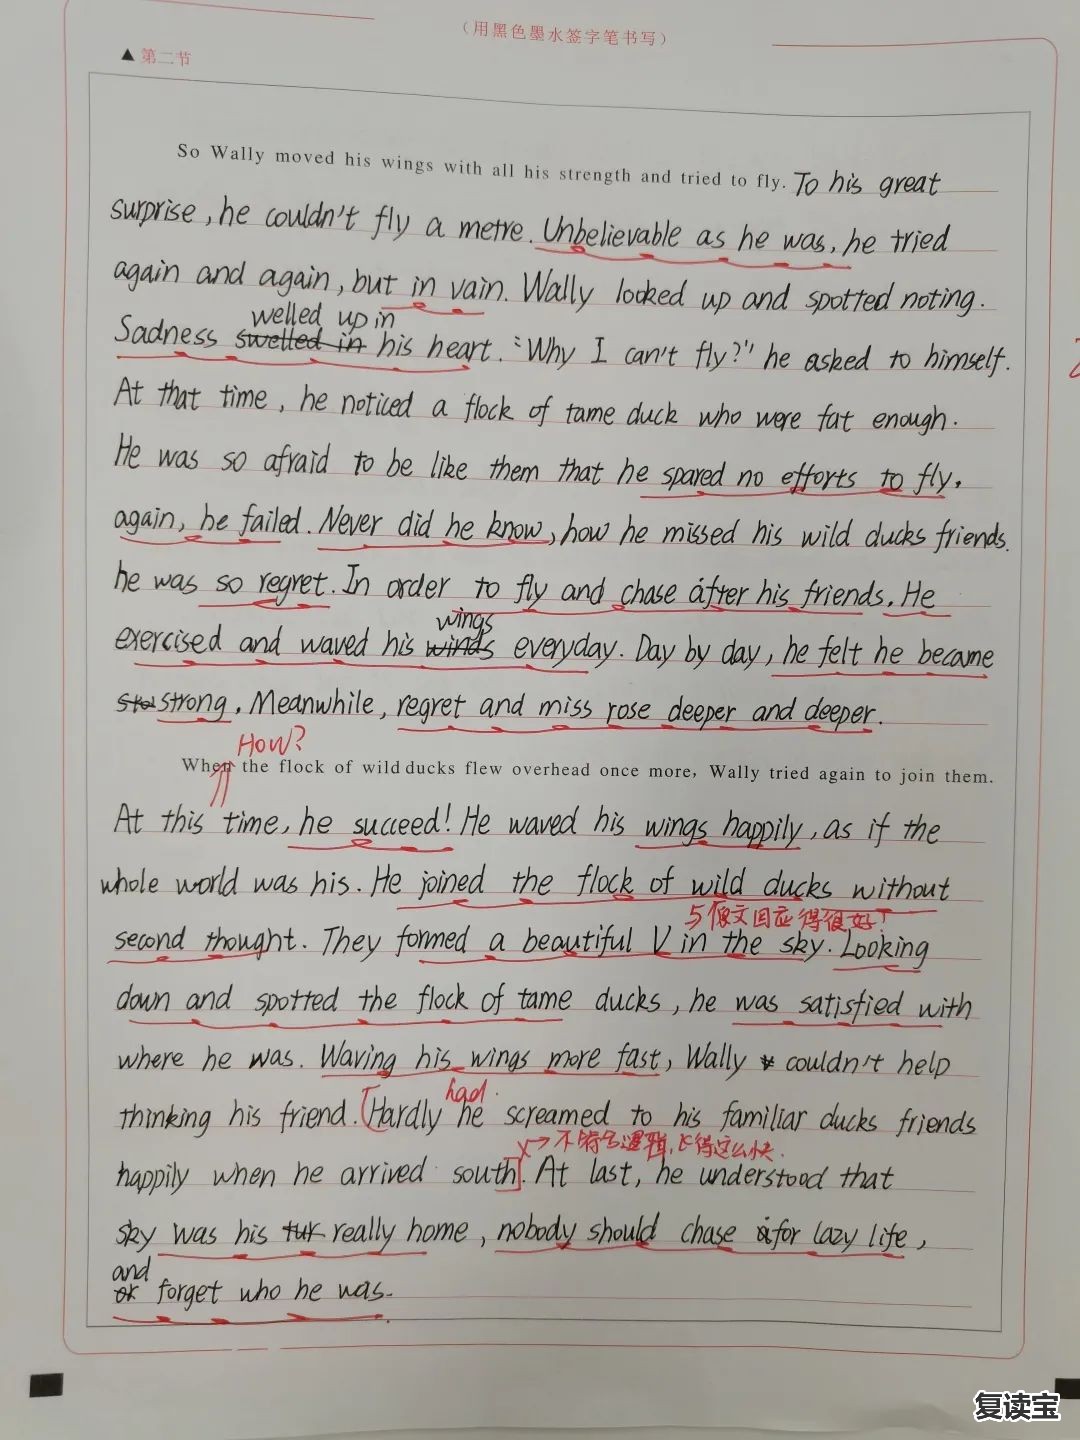 （用黑色墨水签字笔书写）
▲ 第二节
So Wally moved his wings with all his strength and tried to fly. To his great
surprise, he couldn't fly a metre. Unbelievable as he was, he tried
again and again, but in vain. Wally looked up and spotted noting.
welled up in
Sadness swelled in his heart. "Why I can't fly?" he asked to himself.
At that time, he noticed a flock of tame duck who were fat enough.
He was so afraid to be like them that he spared no efforts to fly,
again, he failed. Never did he know, how he missed his wild ducks friends.
he was so regret. In order to fly and chase after his friends. He
wings
exercised and waved his winds everyday. Day by day, he felt he became
strong. Meanwhile, regret and miss rose deeper and deeper.
How?
When the flock of wild ducks flew overhead once more, Wally tried again to join them.
At this time, he succeed! He waved his wings happily, as if the
whole world was his. He joined the flock of wild ducks without
与原文回应得很好！
second thought. They formed a beautiful V in the sky. Looking
down and spotted the flock of tame ducks, he was satisfied with
where he was. Waving his wings more fast, Wally couldn't help
had
thinking his friend. Hardly he screamed to his familiar ducks friends
不符合逻辑,飞得这么快.
happily when he arrived south. At last, he understood that
sky was his really home, nobody should chase for lazy life,
and
or forget who he was.
复读宝